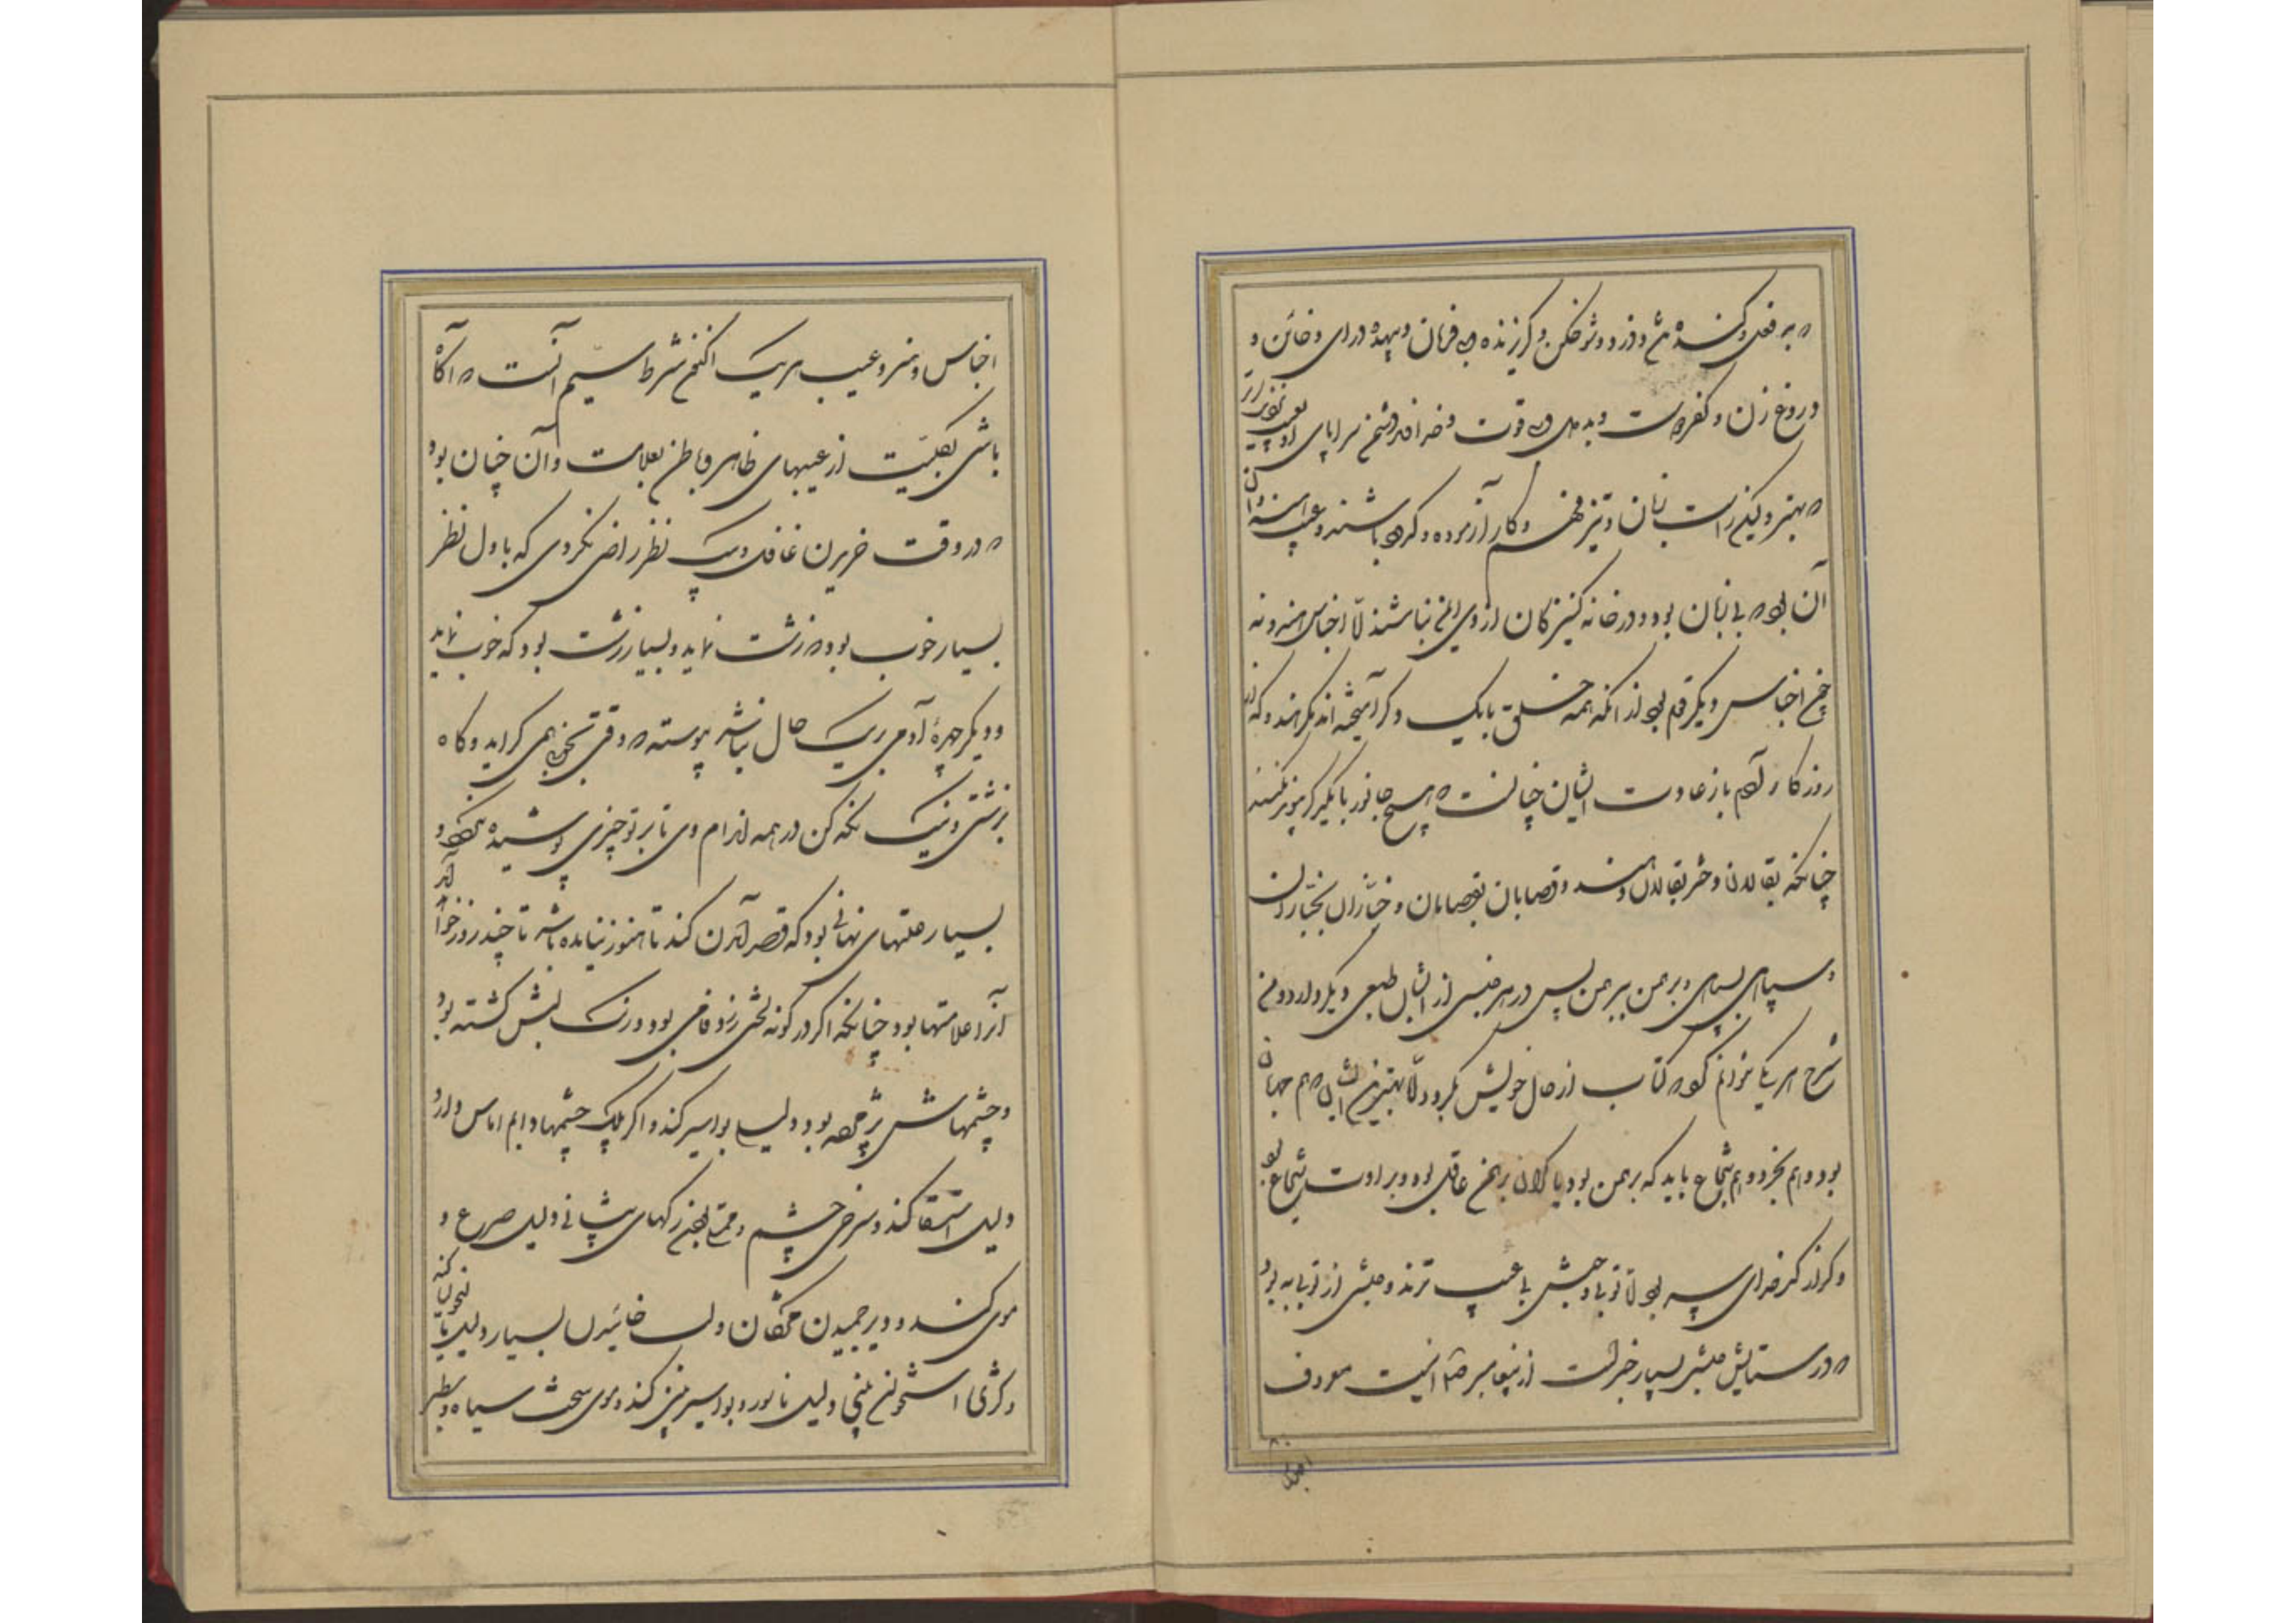 که بد فعل و کنده مخ و دزد و شوخکن و گریزنده و بی فرمان و بیهده درای و خائن و
دروغ زن و کفر دوست و بد دل و بی قوت و خداوند دشمن سراپای او بعیب
که بهتر و لیکن راست زبان و تیز فهم و کار آزموده و باشند و عیب
آن بود که بی زبان بود و در خانه کنیزکان از وی ایمن نباشند اما اجناس هندو نه
چون اجناس دیگر قوم بود از آنکه همه خلق با یک دگر آمیخته اند مگر هندو که از
روزگار آدم باز عادت ایشان چنانست که هیچ جانور با یکدیگر پیوند نکنند
چنانکه بقالان دختر بقالان دهند و قصابان بقصابان و خبازان بخبازان
و سپاهی بسپاهی و برهمن ببرهمن پس در هر جنسی از ایشان طبعی دیگر دارد و من
شرح هر یکی نتوانم گفت که کتاب از حال خویش بگردد اما بهترین ایشان که هم مهربان
بود و هم بخرد و هم شجاع باید که برهمن بود یا کلان برهمن عاقل بود و براوت شجاع بود
و کرار کدخدای سپس بود اما نوبی و حبشی بی عیب ترند و حبشی از نوبی به بود
که در ستایش حبشی بسیار خبرست از پیغامبر اینست معروف
اجناس
اجناس و هنر و عیب هر یک اکنون شرط سیم آنست که آگاه
باشی بکلیت از عیبهای ظاهر و باطن بعلامت و آن چنان بود
که در وقت خریدن غافل و بیک نظر راضی نگردی که باول نظر
بسیار خوب بود که زشت نماید و بسیار زشت بود که خوب نماید
و دیگر چهرهٔ آدمی بر یک حال نباشد پیوسته که وقتی بخوبی همی گراید و گاه
بزشتی و نیک نگه کن در همه اندام وی تا بر تو چیزی پوشیده نگردد و
بسیار علتهای نهانی بود که قصد آمدن کند تا هنوز نیامده باشد تا چند روز خواهد آمد
آنرا علامتها بود چنانکه اگر در گونه لختی زردفامی بود و رنگ لبش گشته بود
و چشمهاش پژمرده بود دلیل بواسیر کند و اگر پلک چشمها دایم آماس دارد
دلیل استسقا کند و سرخی چشم و ممتلی بودن رگهای پیشانی دلیل صرع و
موی کندن و دیر جنبیدن مژگان و لب خائیدن بسیار دلیل مالیخولیا کند
و کژی استخوان بینی دلیل ناسور و بواسیر بینی کند و موی سخت سیاه و سطبر